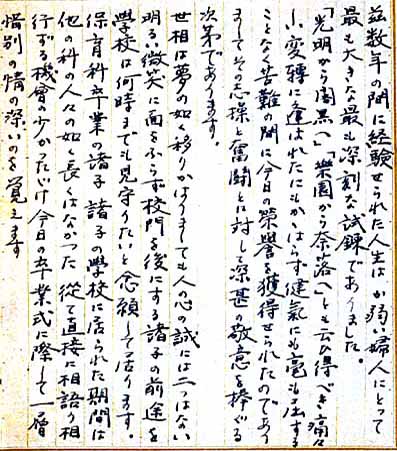 茲数年の間に経験せられた人生は か弱い婦人にとって
最も大きな最も深刻な試錬でありました。
「光明から闇黒へ」「樂園から奈落へ」とも云ひ得べき痛々
しい変轉に逢はれたにもかゝはらず健氣にも毫も屈する
ことなく苦難の間に今日の榮譽を獲得せられたのであり
ましてその志操と奮闘とに対して深甚の敬意を捧ぐる
次第であります。
世相は夢の如く移りかはりましても人の心の誠には二つはない
明るい微笑に面をふらず校門を後にする諸子の前途を
学校は何時までも見守りたいと念願して居ります。
保育科卒業の諸子 諸子の學校に居られた期間は
他の科の人々の如く長くはなかつた 從て直接に相語り相
行ずる機會の少かつただけ今日の卒業式に際して一層
惜別の情の深いのを覚えます